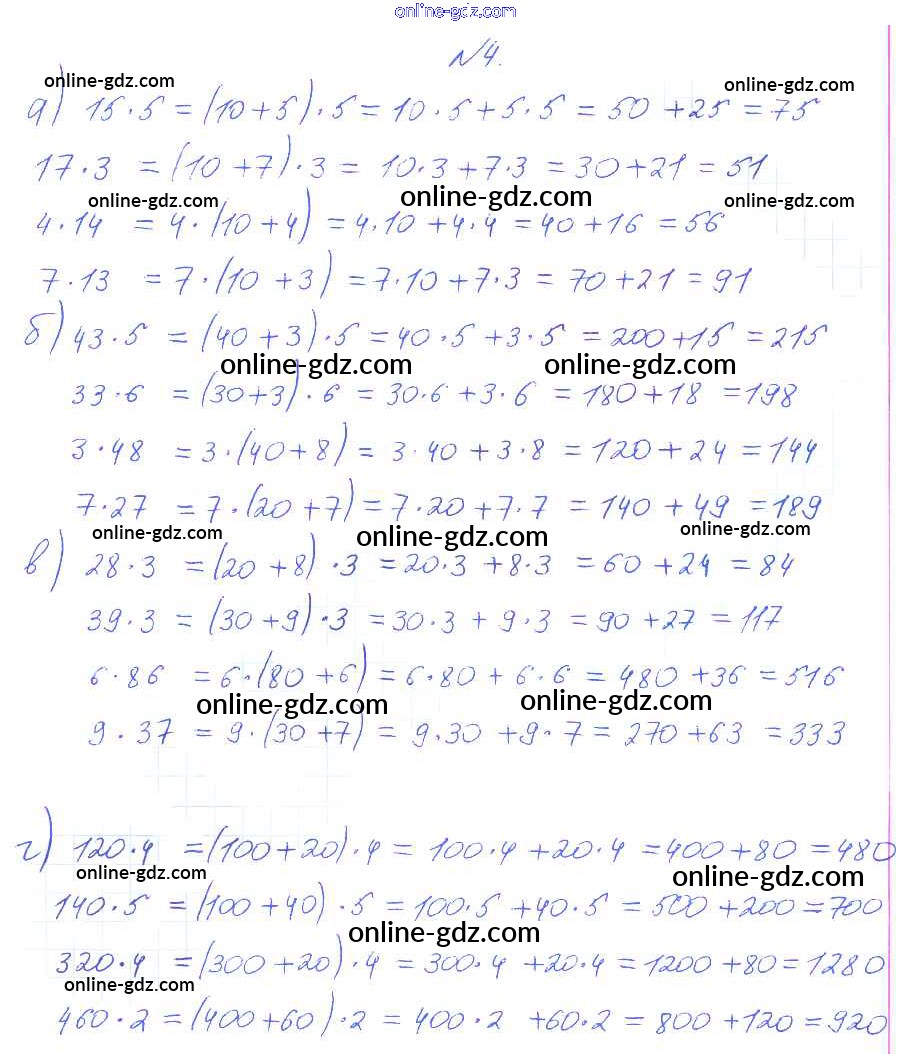 online-gdz.com
№4.
online-gdz.com online-gdz.com
а) 15·5 = (10+5)·5 = 10·5+5·5 = 50+25 = 75
17·3 = (10+7)·3 = 10·3+7·3 = 30+21 = 51
online-gdz.com online-gdz.com online-gdz.com
4·14 = 4·(10+4) = 4·10+4·4 = 40+16 = 56
7·13 = 7·(10+3) = 7·10+7·3 = 70+21 = 91
б) 43·5 = (40+3)·5 = 40·5+3·5 = 200+15 = 215
online-gdz.com online-gdz.com
33·6 = (30+3)·6 = 30·6+3·6 = 180+18 = 198
3·48 = 3·(40+8) = 3·40+3·8 = 120+24 = 144
7·27 = 7·(20+7) = 7·20+7·7 = 140+49 = 189
online-gdz.com online-gdz.com online-gdz.com
в) 28·3 = (20+8)·3 = 20·3+8·3 = 60+24 = 84
39·3 = (30+9)·3 = 30·3+9·3 = 90+27 = 117
6·86 = 6·(80+6) = 6·80+6·6 = 480+36 = 516
online-gdz.com online-gdz.com
9·37 = 9·(30+7) = 9·30+9·7 = 270+63 = 333
г) 120·4 = (100+20)·4 = 100·4+20·4 = 400+80 = 480
online-gdz.com online-gdz.com
140·5 = (100+40)·5 = 100·5+40·5 = 500+200 = 700
online-gdz.com
320·4 = (300+20)·4 = 300·4+20·4 = 1200+80 = 1280
online-gdz.com
460·2 = (400+60)·2 = 400·2+60·2 = 800+120 = 920